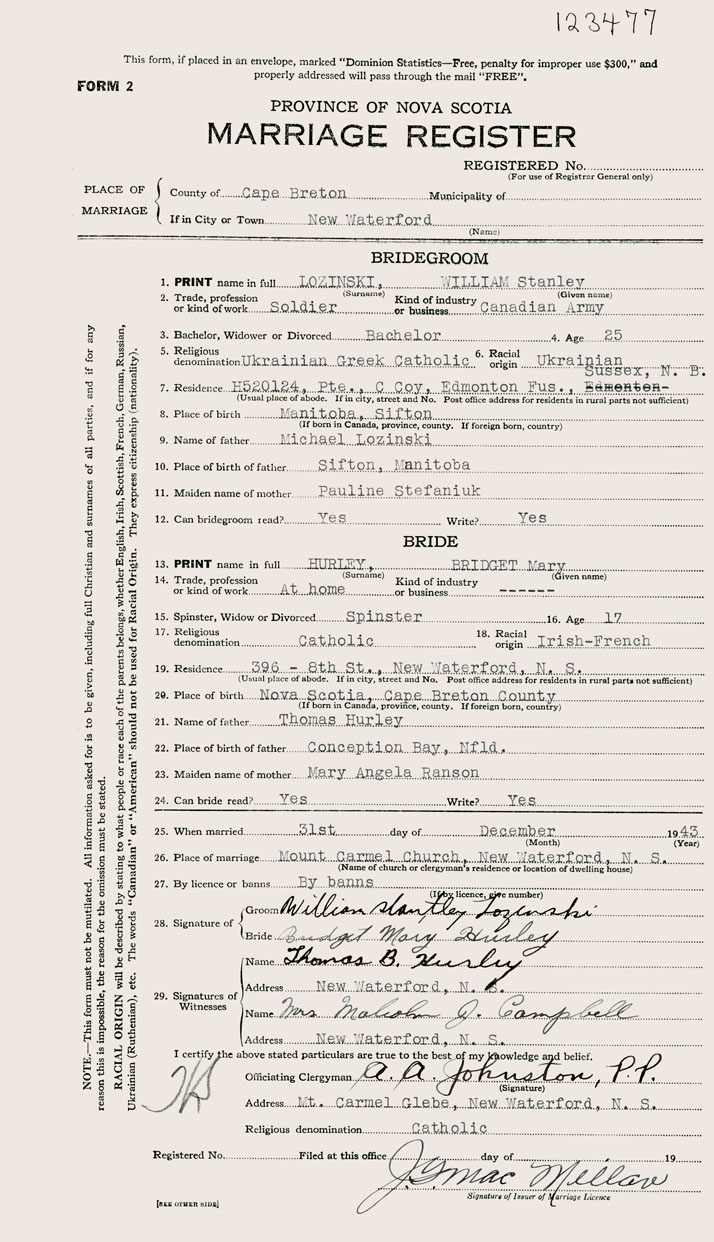 123477
This form, if placed in an envelope, marked "Dominion Statistics—Free, penalty for improper use $300," and
properly addressed will pass through the mail "FREE".
FORM 2
PROVINCE OF NOVA SCOTIA
MARRIAGE REGISTER
REGISTERED No.
(For use of Registrar General only)
PLACE OF MARRIAGE
County of Cape Breton Municipality of
If in City or Town New Waterford
(Name)
BRIDEGROOM
1. PRINT name in full LOZINSKI, WILLIAM Stanley
(Surname) (Given name)
2. Trade, profession or kind of work Soldier Kind of industry or business Canadian Army
3. Bachelor, Widower or Divorced Bachelor 4. Age 25
5. Religious denomination Ukrainian Greek Catholic 6. Racial origin Ukrainian
Sussex, N. B.
7. Residence H520124, Pte., C Coy, Edmonton Fus., Edmonton
(Usual place of abode. If in city, street and No. Post office address for residents in rural parts not sufficient)
8. Place of birth Manitoba, Sifton
(If born in Canada, province, county. If foreign born, country)
9. Name of father Michael Lozinski
10. Place of birth of father Sifton, Manitoba
11. Maiden name of mother Pauline Stefaniuk
12. Can bridegroom read? Yes Write? Yes
BRIDE
13. PRINT name in full HURLEY, BRIDGET Mary
(Surname) (Given name)
14. Trade, profession or kind of work At home Kind of industry or business ------
15. Spinster, Widow or Divorced Spinster 16. Age 17
17. Religious denomination Catholic 18. Racial origin Irish-French
19. Residence 396 - 8th St., New Waterford, N. S.
(Usual place of abode. If in city, street and No. Post office address for residents in rural parts not sufficient)
20. Place of birth Nova Scotia, Cape Breton County
(If born in Canada, province, county. If foreign born, country)
21. Name of father Thomas Hurley
22. Place of birth of father Conception Bay, Nfld.
23. Maiden name of mother Mary Angela Ranson
24. Can bride read? Yes Write? Yes
25. When married 31st day of December 1943
(Month) (Year)
26. Place of marriage Mount Carmel Church, New Waterford, N. S.
(Name of church or clergyman's residence or location of dwelling house)
27. By licence or banns By banns
(If by licence, give number)
28. Signature of
Groom William Stantley Lozinski
Bride Bridget Mary Hurley
29. Signatures of Witnesses
Name Thomas B. Hurley
Address New Waterford, N. S.
Name Mrs Malcolm J. Campbell
Address New Waterford, N. S.
I certify the above stated particulars are true to the best of my knowledge and belief.
Officiating Clergyman A. A. Johnston, P.P.
(Signature)
Address Mt. Carmel Glebe, New Waterford, N. S.
Religious denomination Catholic
Registered No. Filed at this office day of 19
J G Mac Millan
Signature of Issuer of Marriage Licence
[SEE OTHER SIDE]
NOTE.—This form must not be mutilated. All information asked for is to be given, including full Christian and surnames of all parties, and if for any
reason this is impossible, the reason for the omission must be stated.
RACIAL ORIGIN will be described by stating to what people or race each of the parents belongs, whether English, Irish, Scottish, French, German, Russian,
Ukrainian (Ruthenian), etc. The words "Canadian" or "American" should not be used for Racial Origin. They express citizenship (nationality).